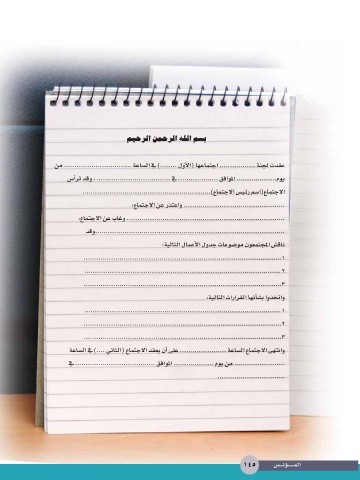 بسم الله الرحمن الرحيم
عقدت لجنة .................. اجتماعها (الأول ........) في الساعة .................................. من
يوم.................... الموافق..................... في ................................... وقد ترأس
الاجتماع(اسم رئيس الاجتماع)................................................................
................................................... واعتذر عن الاجتماع:
............................................................................... وغاب عن الاجتماع:
.................................................................................................وقد
ناقش المجتمعون موضوعات جدول الأعمال التالية:
١....................................................................................................
٢ ...................................................................................................
٣....................................................................................................
واتخذوا بشأنها القرارات التالية:
١ ...................................................................................................
٢....................................................................................................
٣....................................................................................................
وانتهى الاجتماع الساعة ........................ على أن يعقد الاجتماع (الثاني ....) في الساعة
.......................... من يوم ..................... الموافق ........................................ في
...................................
١٤٥ المـــؤنـــس